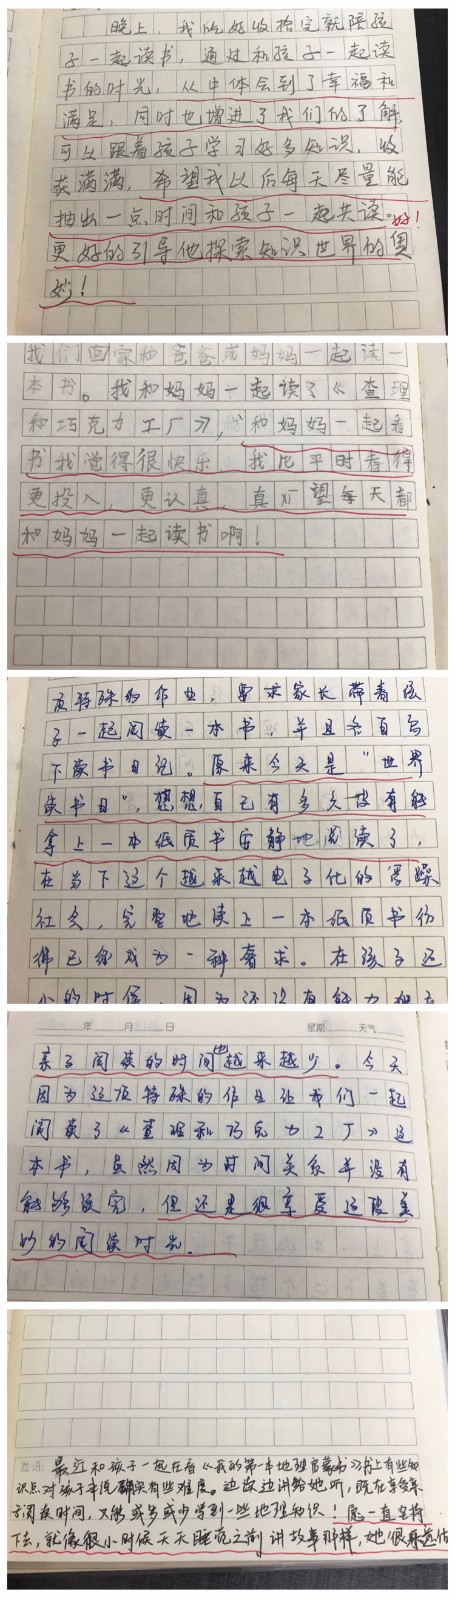 晚上,我们好收拾完就陪孩
子一起读书,通过和孩子一起读
书的时光,从中体会到了幸福和
满足,同时也增进了我们的了解,
可以跟着孩子学习好多知识,收
获满满,希望我以后每天尽量能
抽出一点时间和孩子一起共读。好!
更好的引导他探索知识世界的奥
妙!
我们回家和爸爸或妈妈一起读一
本书。我和妈妈一起读了《查理
和巧克力工厂》,我和妈妈一起看
书我觉得很快乐,我比平时看得
更投入,更认真,真希望每天都
和妈妈一起读书啊!
项特殊的作业,要求家长带着孩
子一起阅读一本书,并且各自写
下读书日记。原来今天是“世界
读书日”,想想,自己有多久没有能
拿上一本纸质书安静地阅读了,
在当下这个越来越电子化的
社会,完整地读上一本纸质书仿
佛已经成为一种奢求。在孩子还
小的时候,因为还没有能力独立
年 月 日 星期 天气
亲子阅读的时间也越来越少。今天
因为这项特殊的作业让我们一起
阅读了《查理和巧克力工厂》这
本书,虽然因为时间关系并没有
能够读完,但还是很享受这段美
妙的阅读时光。
最近和孩子一起在看《我的第一本地理启蒙书》书上有些知
识点对孩子来说确实有些难度。边读边讲给她听,既能享受亲
子阅读时间,又能或多或少学到一些地理知识!愿一直坚持
下去,就像很小时候天天睡觉之前讲故事那样,她很